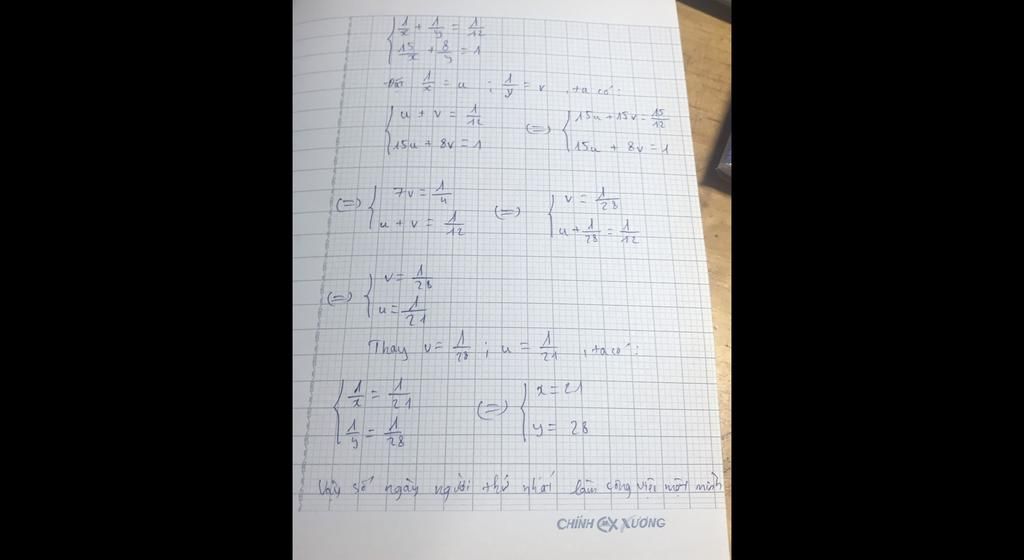 1/x + 1/y = 1/12
15/x + 8/y = 1
Đặt 1/x = u ; 1/y = v , ta có:
u + v = 1/12 (=) 15u + 15v = 15/12
15u + 8v = 1 15u + 8v = 1
(=) 7v = 1/4 (=) v = 1/28
u + v = 1/12 u + 1/28 = 1/12
(=) v = 1/28
u = 1/21
Thay v = 1/28 ; u = 1/21 , ta có:
1/x = 1/21 (=) x = 21
1/y = 1/28 y = 28
Vậy số ngày người thứ nhất làm công việc một mình
CHÍNH CX XƯƠNG